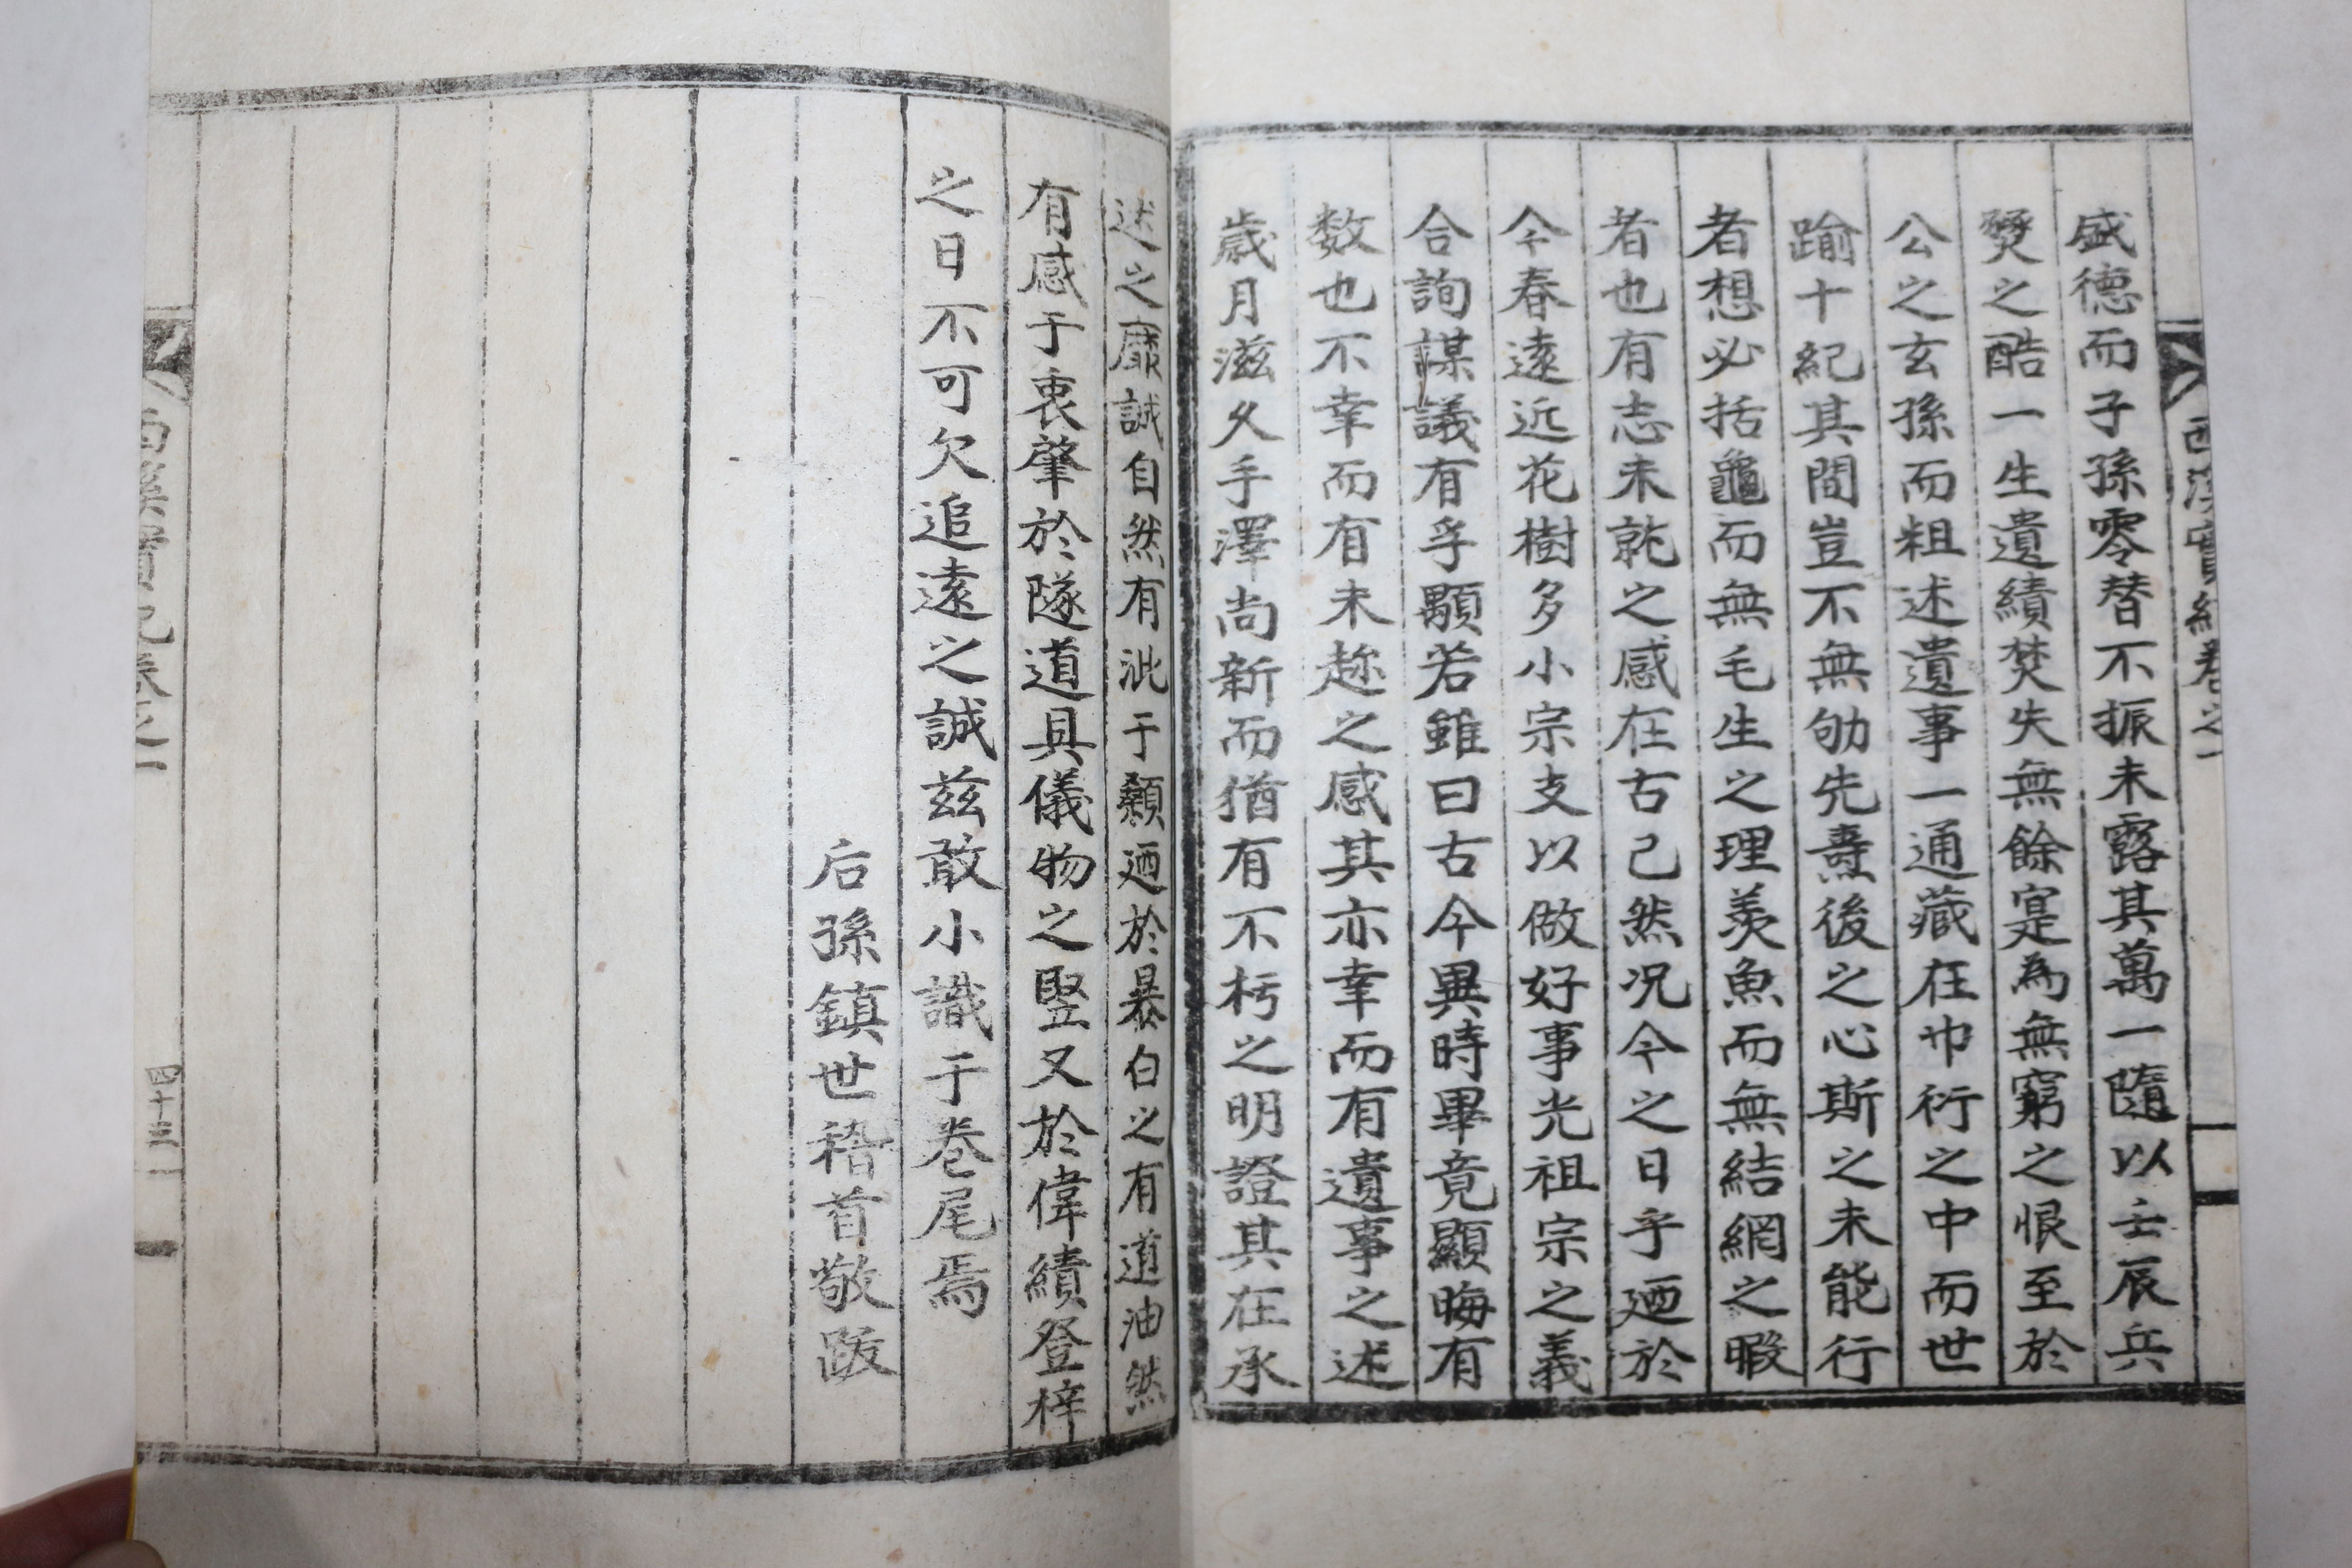 西溪實紀卷之一
盛德而子孫零替不振未露其萬一隨以壬辰兵
燹之酷一生遺績焚失無餘寔為無窮之恨至於
公之玄孫而粗述遺事一通藏在巾衍之中而世
踰十紀其間豈不無劬先燾後之心斯之未能行
者想必括龜而無毛生之理羡魚而無結網之暇
者也有志未就之感在古已然况今之日乎廼於
今春遠近花樹多小宗支以做好事光祖宗之義
合詢謀議有孚顒若雖曰古今異時畢竟顯晦有
数也不幸而有未趂之感其亦幸而有遺事之述
歲月滋久手澤尚新而猶有不朽之明證其在承
述之靡誠自然有泚于顙廼於暴白之有道油然
有感于衷肇於隧道具儀物之竪又於偉績登梓
之日不可欠追遠之誠玆敢小識于卷尾焉
后孫鎮世稽首敬跋
西溪實紀卷之一
四十三